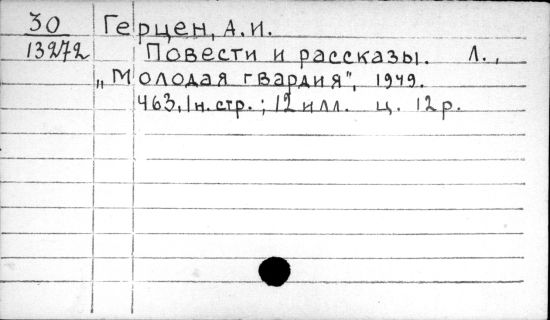 30 Герцен, А.И.
13272 Повести и рассказы. Л.,
„Молодая гвардия", 1949.
463,1н.стр.; 12 илл. ц. 12р.